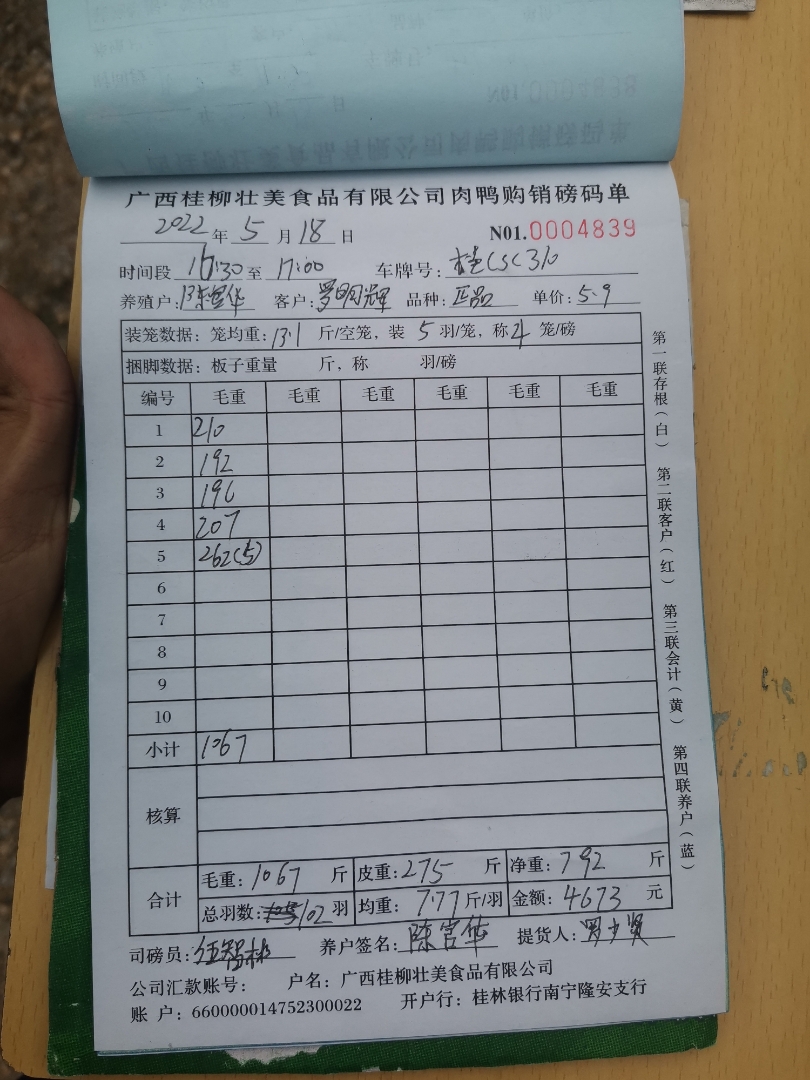 广西桂柳壮美食品有限公司肉鸭购销磅码单
2022年5月18日 N01.0004839
时间段 16:30至 17:00 车牌号：桂CSC310
养殖户：陈宫华 客户：罗明辉 品种：正品 单价：5.9
装笼数据：笼均重：13.1 斤/空笼，装 5 羽/笼，称 4 笼/磅
捆脚数据：板子重量 斤，称 羽/磅
编号 毛重 毛重 毛重 毛重 毛重 毛重
1 210
2 192
3 196
4 207
5 262(5)
6
7
8
9
10
小计 1067
核算
合计
毛重：1067 斤 皮重：275 斤 净重：792 斤
总羽数：102 羽 均重：7.77 斤/羽 金额：4673 元
司磅员： 养户签名：陈宫华 提货人：罗少贤
公司汇款账号： 户名：广西桂柳壮美食品有限公司
账 户：660000014752300022 开户行：桂林银行南宁隆安支行
第一联存根（白） 第二联客户（红） 第三联会计（黄） 第四联养户（蓝）